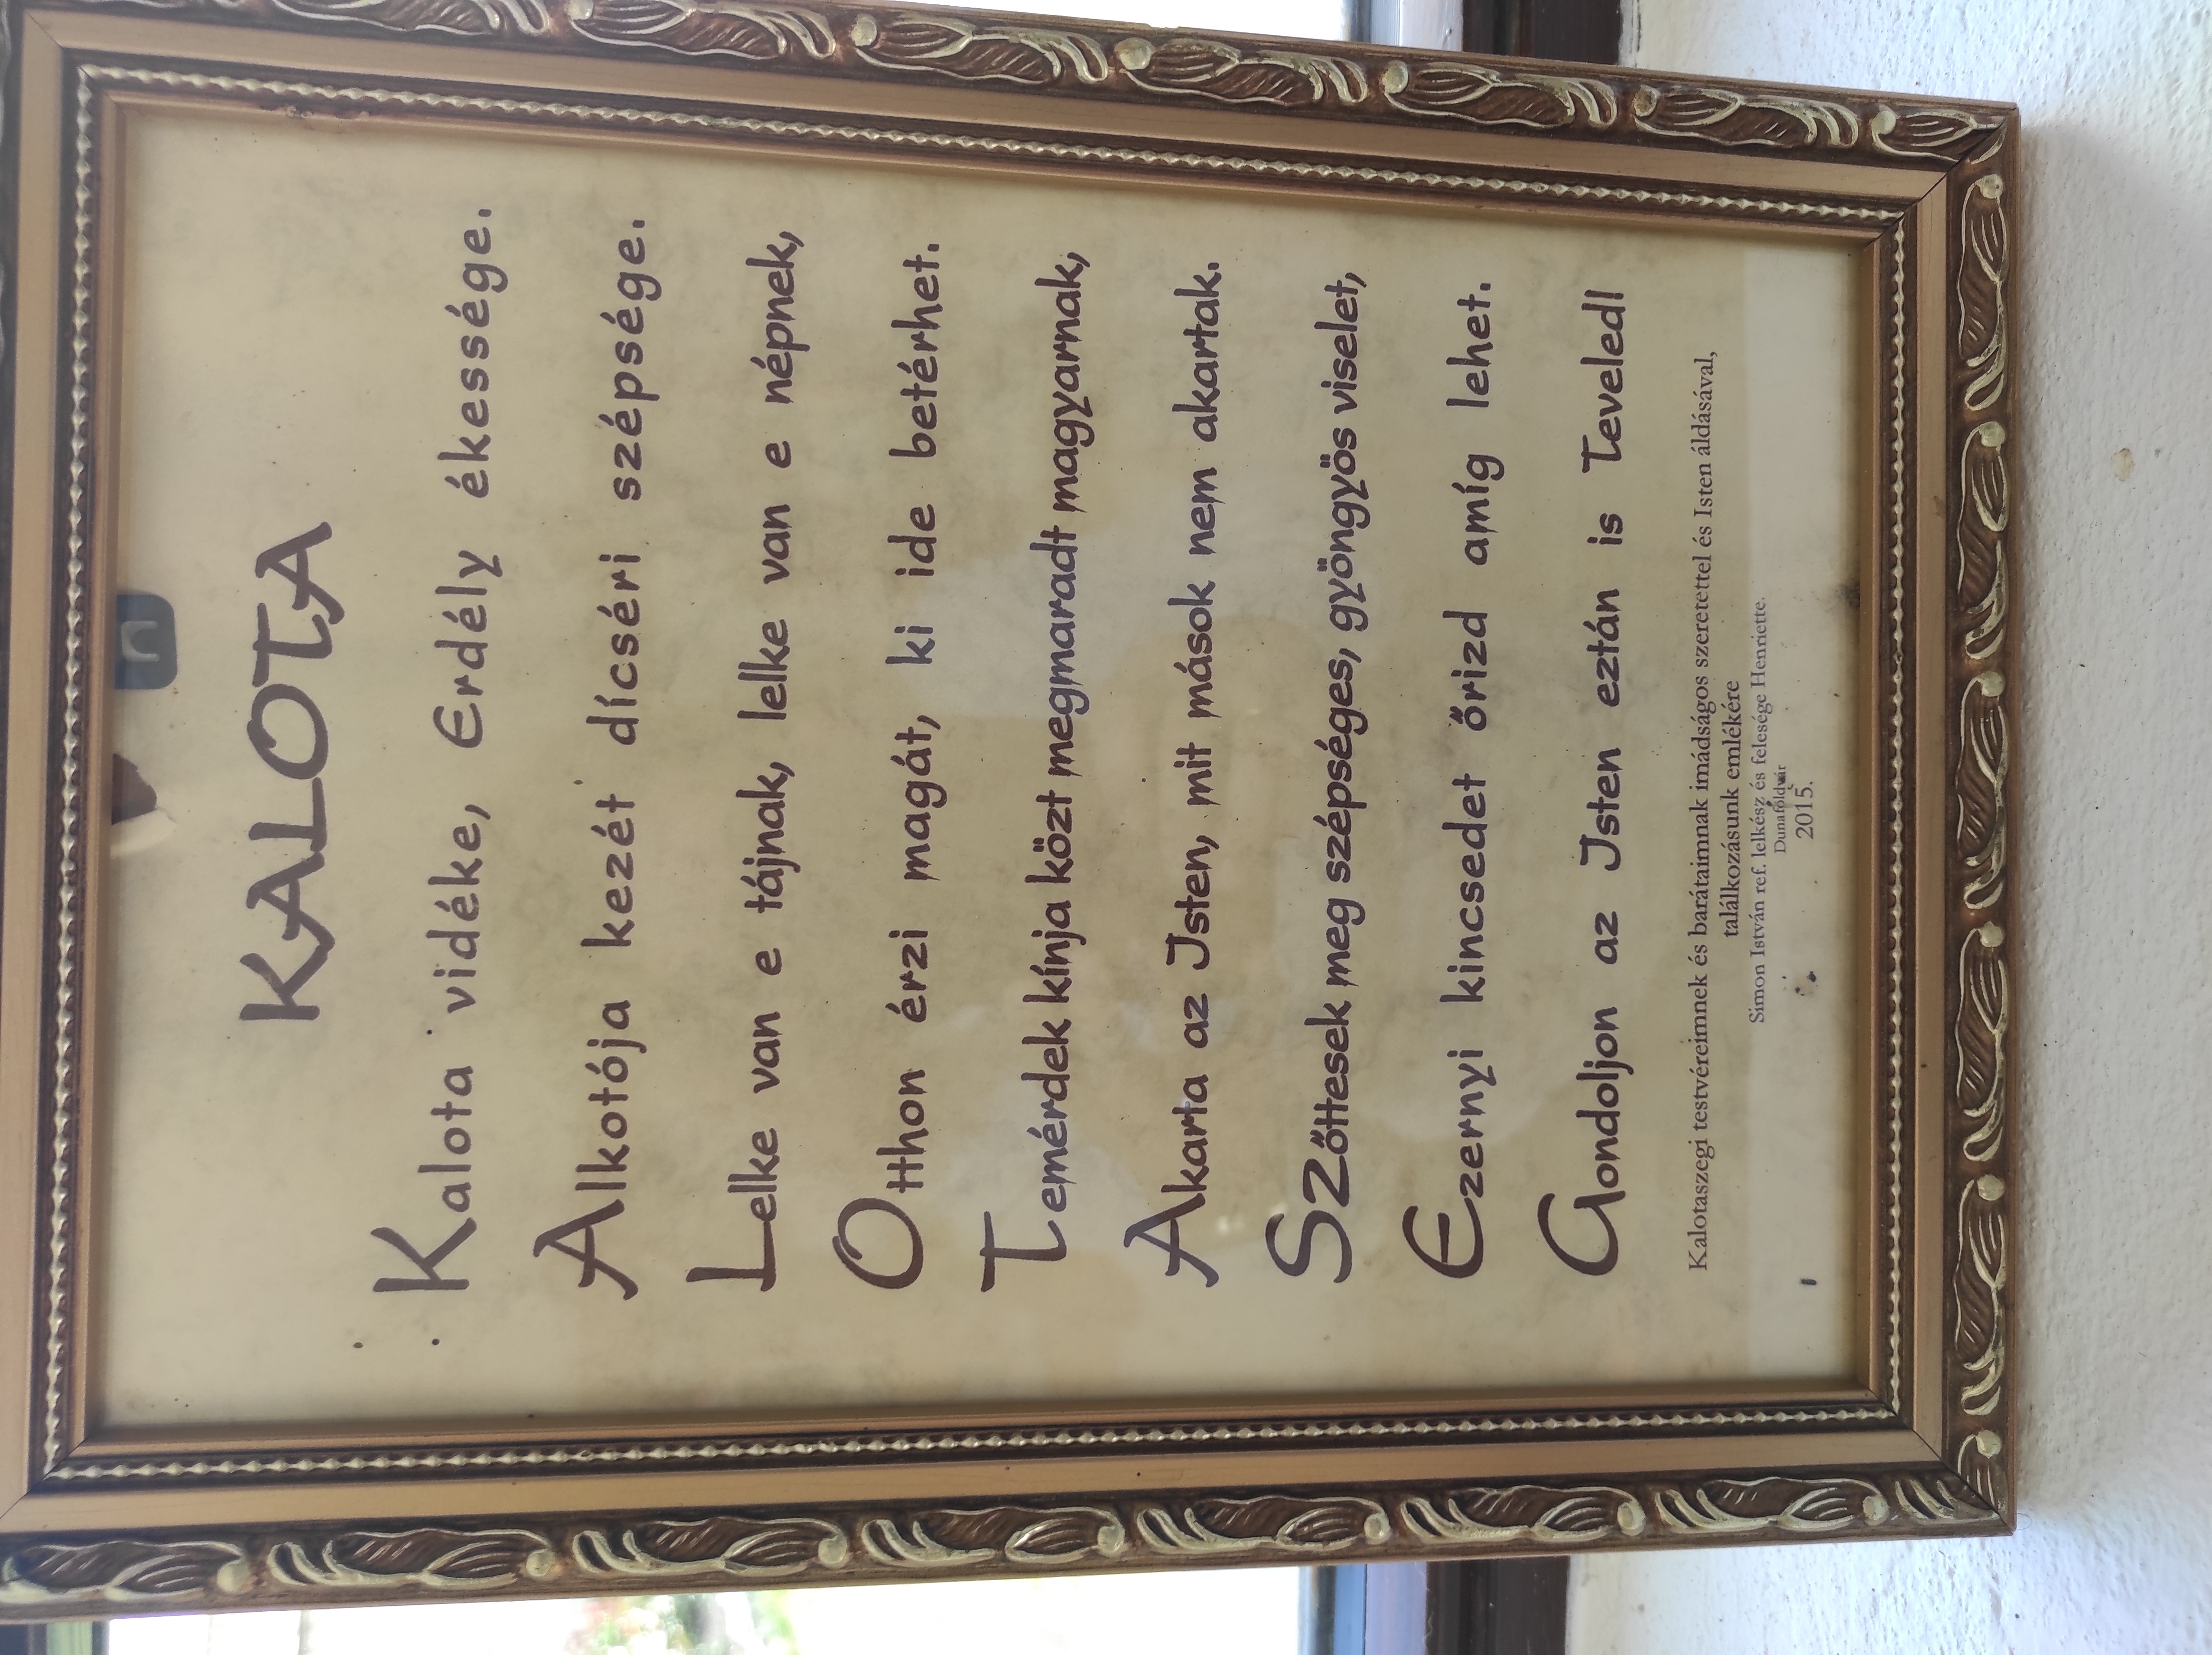 KALOTA
Kalota vidéke, Erdély ékessége.
Alkotója kezét dícséri szépsége.
Lelke van e tájnak, lelke van e népnek,
Otthon érzi magát, ki ide betérhet.
Temérdek kínja közt megmaradt magyarnak,
Akarta az Isten, mit mások nem akartak.
SZőttesek meg szépséges, gyöngyös viselet,
Ezernyi kincsedet őrizd amíg lehet.
Gondoljon az Isten eztán is Teveled!
Kalotaszegi testvéreimnek és barátaimnak imádságos szeretettel és Isten áldásával,
találkozásunk emlékére
Simon István ref. lelkész és felesége Henriette.
Dunaföldvár
2015.